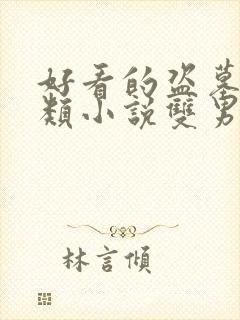 好看的盗墓
類小說雙男
林言傾